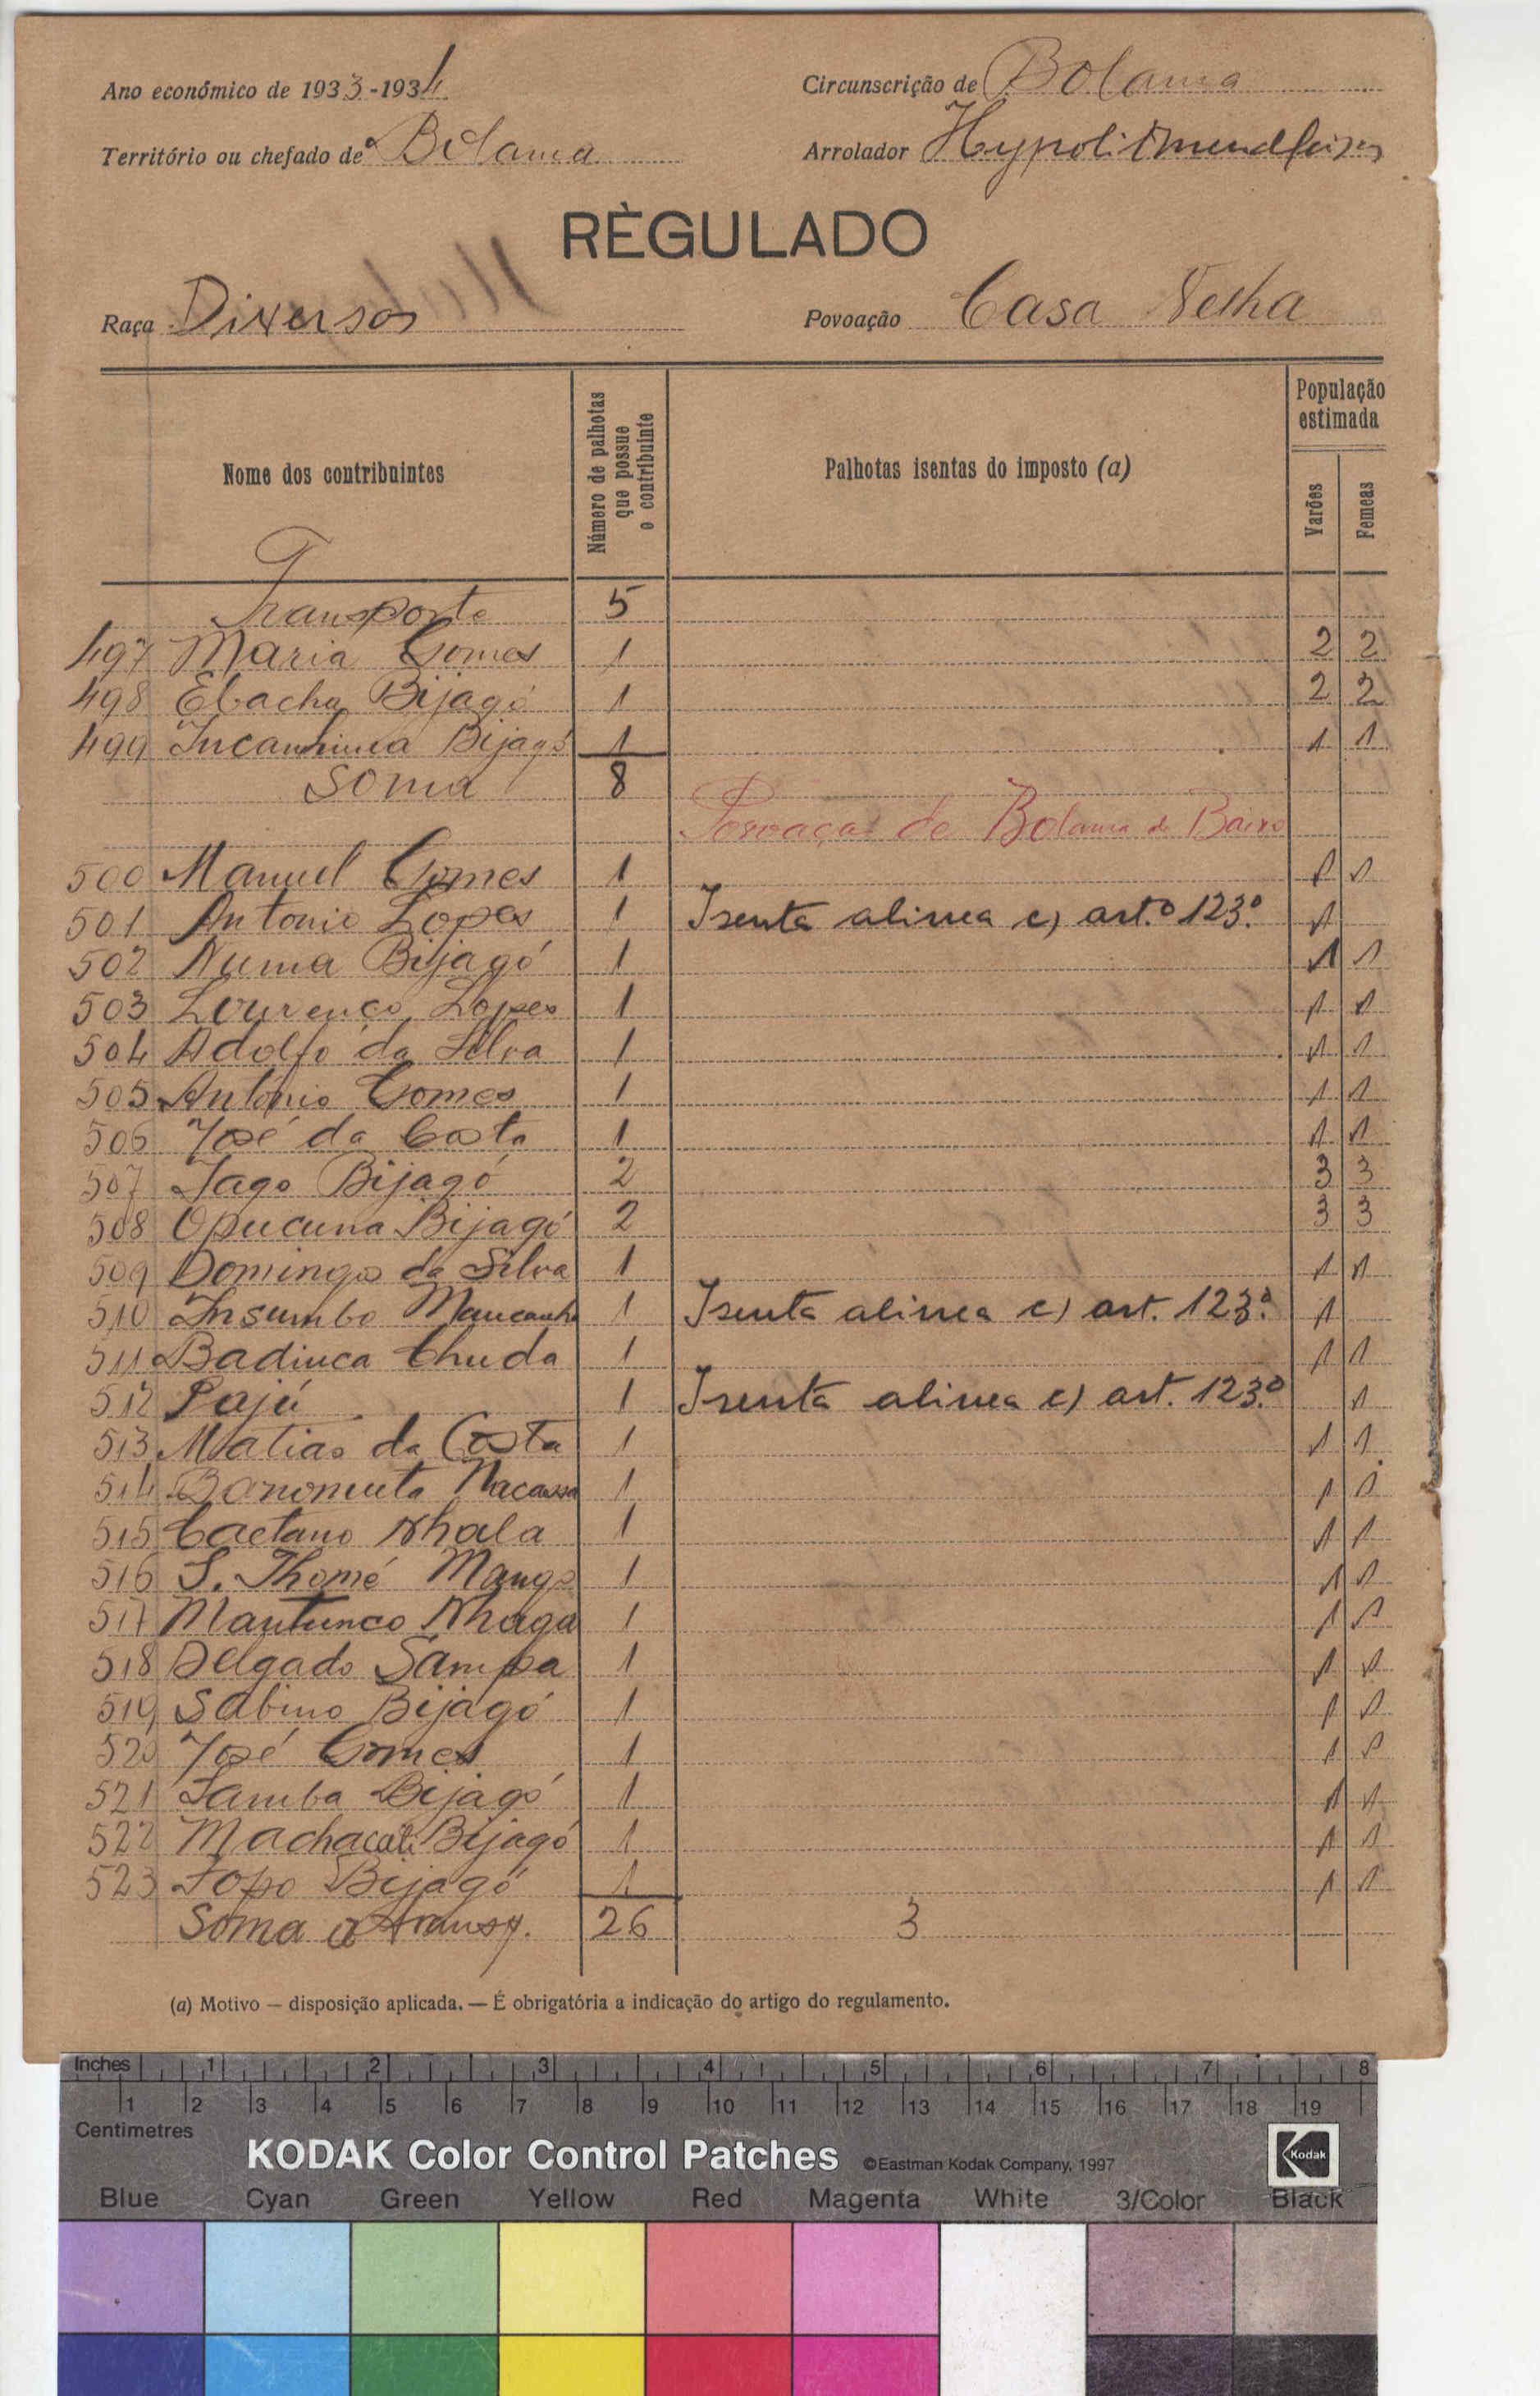 Ano económico de 1933-1934 Circunscrição de Bolama
Território ou chefado de Bolama Arrolador
RÈGULADO
Raça Diversos Povoação Casa Velha
Nome dos contribuintes
Número de palhotas que possue o contribuinte
Palhotas isentas do imposto (a)
População estimada
Varões Femeas
Transporte 5
497 Maria Gomes 1 2 2
498 Ebacha Bijagó 1 2 2
499 Bijagó 1 1 1
Soma 8
Povoação de Bolama de Baixo
500 Manuel Gomes 1 1 1
501 Antonio Lopes 1 Isenta alinea c) art.º 123.º 1
502 Numa Bijagó 1 1 1
503 Lourenço Lopes 1 1 1
504 Adolfo da Silva 1 1 1
505 António Gomes 1 1 1
506 José da Costa 1 1 1
507 Iago Bijagó 2 3 3
508 Opucuna Bijagó 2 3 3
509 Domingos da Silva 1 1 1
510 Insumbo Mancanha 1 Isenta alinea c) art. 123.º 1
511 Badinca Chuda 1 1 1
512 Pajú 1 Isenta alinea c) art. 123.º 1
513 Matias da Costa 1 1 1
514 1 1 1
515 Caetano Nhala 1 1 1
516 S. Thomé Mango 1 1 1
517 Mantunco Nhaga 1 1 1
518 Delgado Sampa 1 1 1
519 Sabino Bijagó 1 1 1
520 José Gomes 1 1 1
521 Samba Bijagó 1 1 1
522 Bijagó 1 1 1
523 Bijagó 1 1 1
Soma a transp. 26 3
(a) Motivo — disposição aplicada. — É obrigatória a indicação do artigo do regulamento.
Inches 1 2 3 4 5 6 7 8
1 2 3 4 5 6 7 8 9 10 11 12 13 14 15 16 17 18 19
Centimetres
KODAK Color Control Patches ©Eastman Kodak Company, 1997 Kodak
Blue Cyan Green Yellow Red Magenta White 3/Color Black